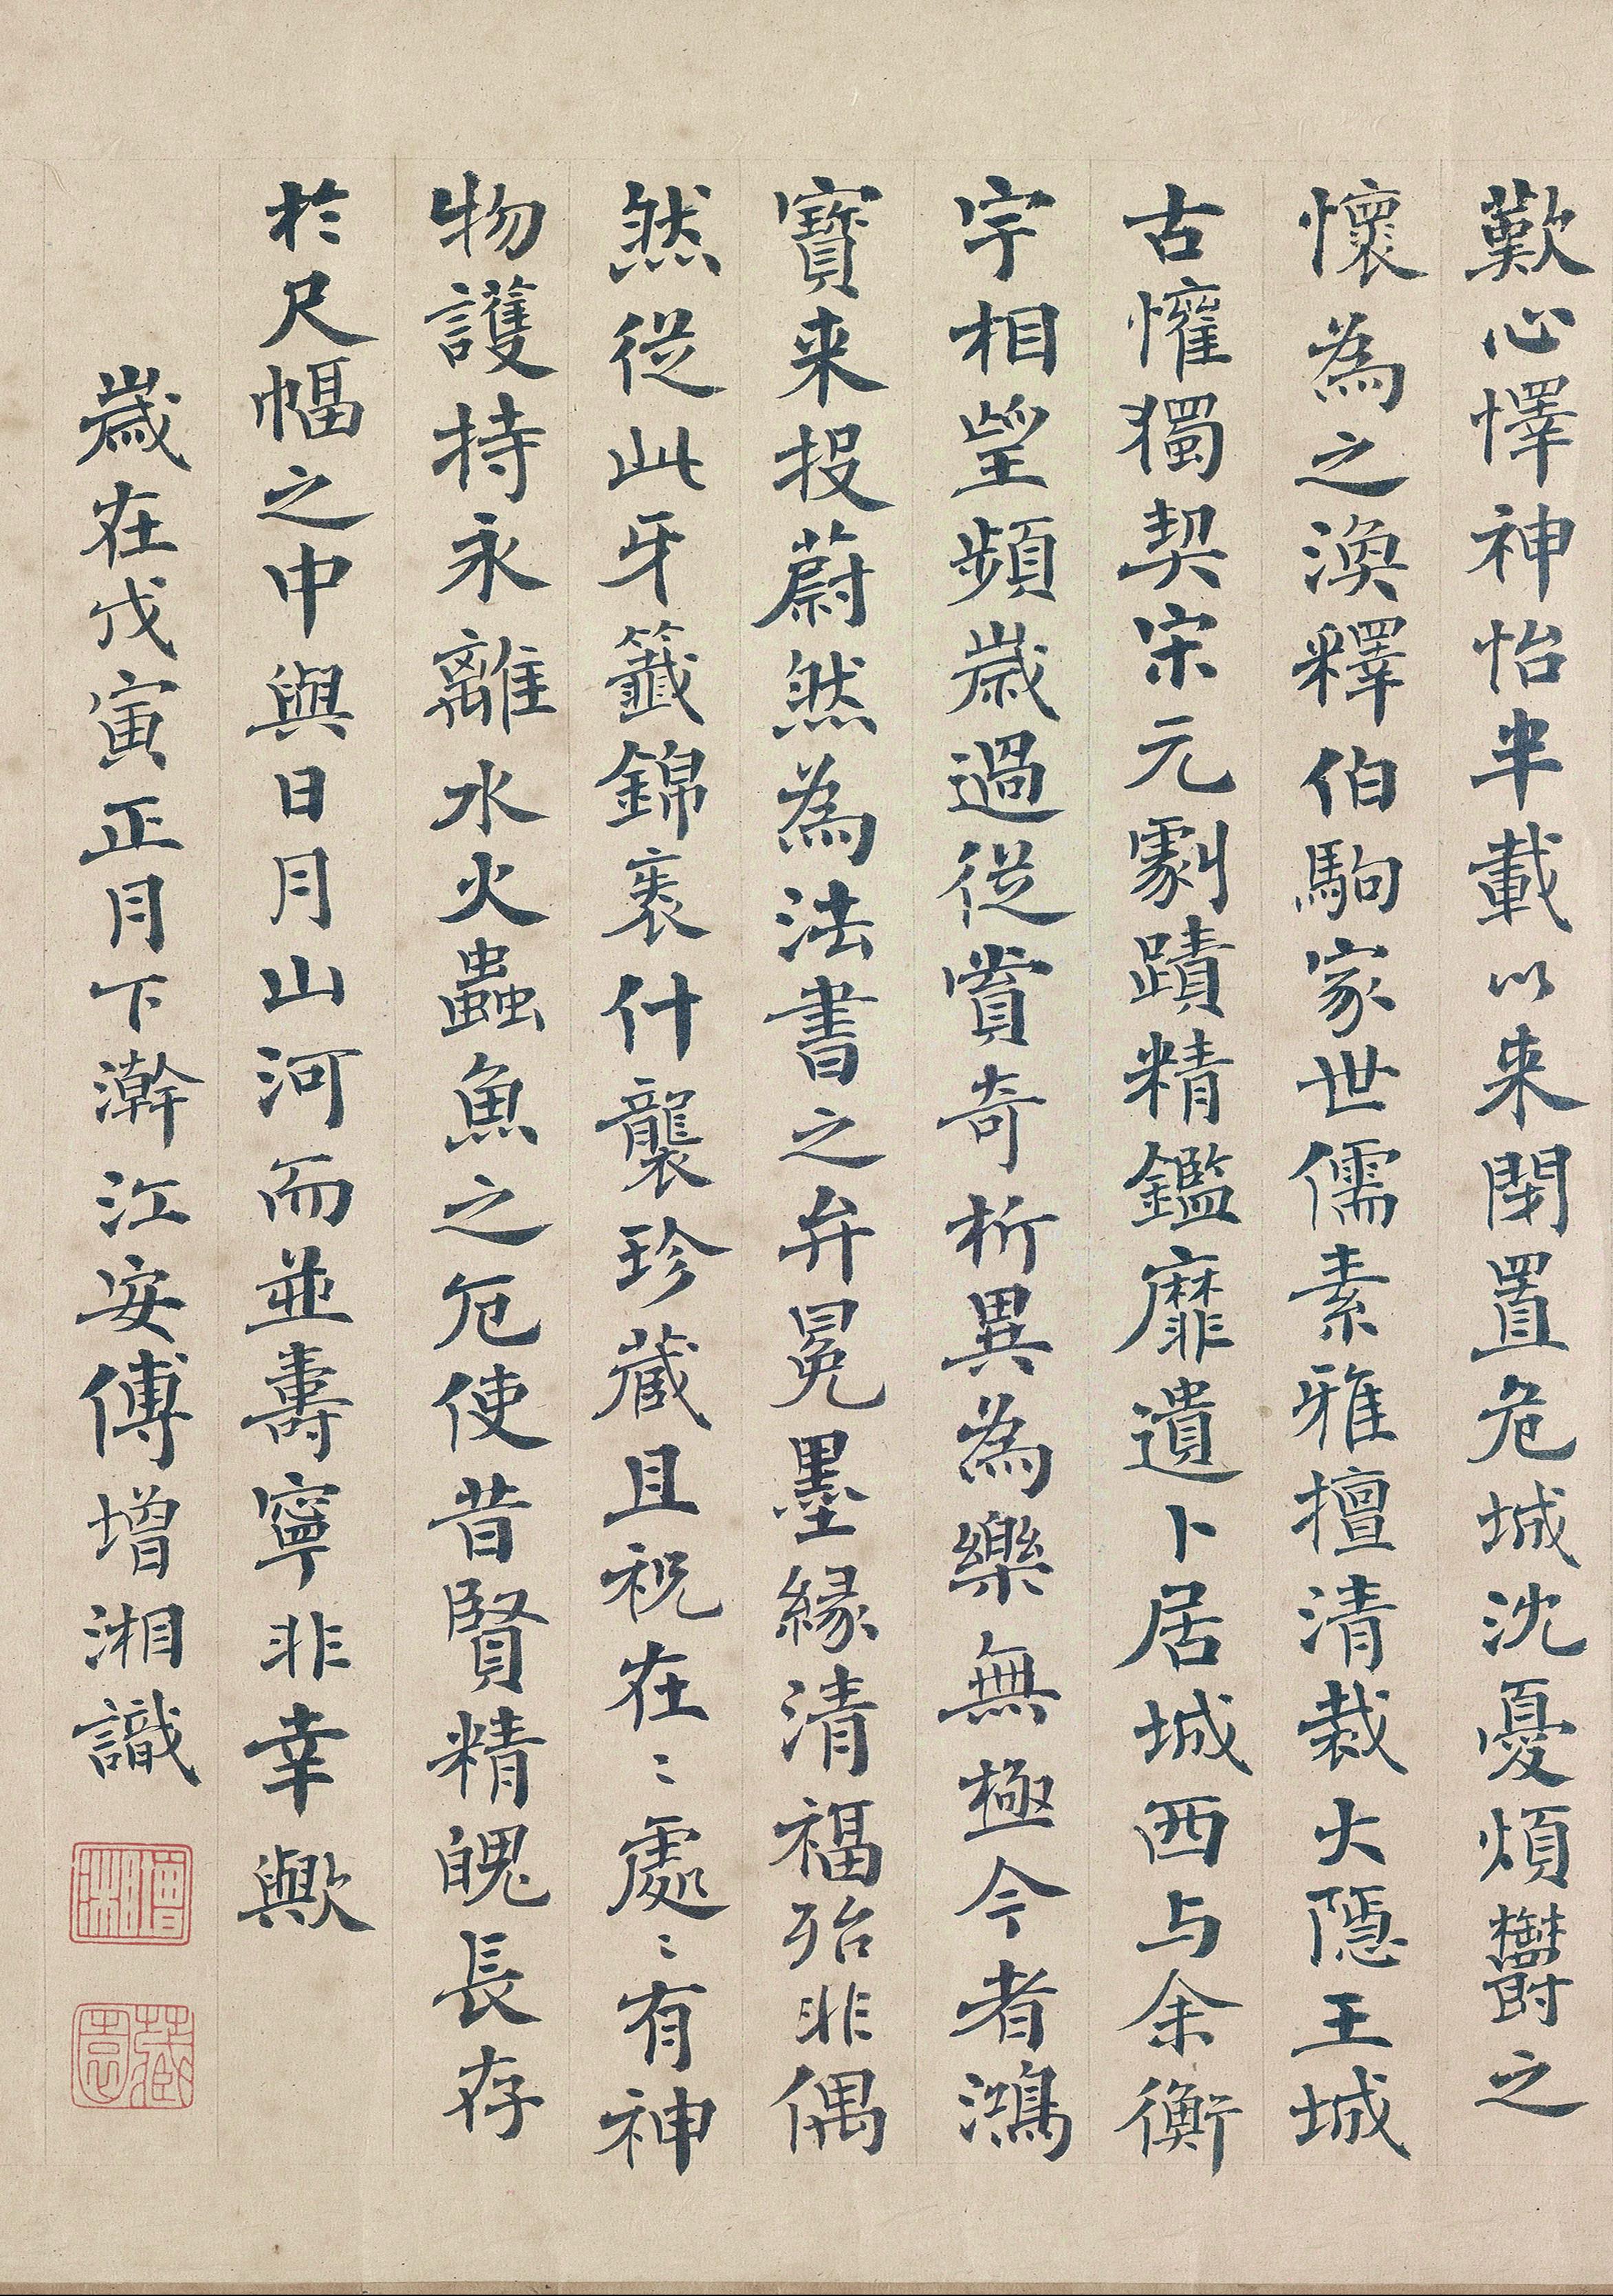 歎心懌神怡半載以来閉置危城沈憂煩欝之
懷為之渙釋伯駒家世儒素雅擅清裁大隱王城
古懽獨契宋元劇蹟精鑑靡遺卜居城西与余衡
宇相望頻歲過從賞奇析異為樂無極今者鴻
寶来投蔚然為法書之弁冕墨緣清福殆非偶
然從此牙籤錦裹什襲珍藏且祝在〻處〻有神
物護持永離水火蟲魚之厄使昔賢精魄長存
於尺幅之中與日月山河而並壽寧非幸歟
歲在戊寅正月下澣江安傅增湘識
增湘
藏園